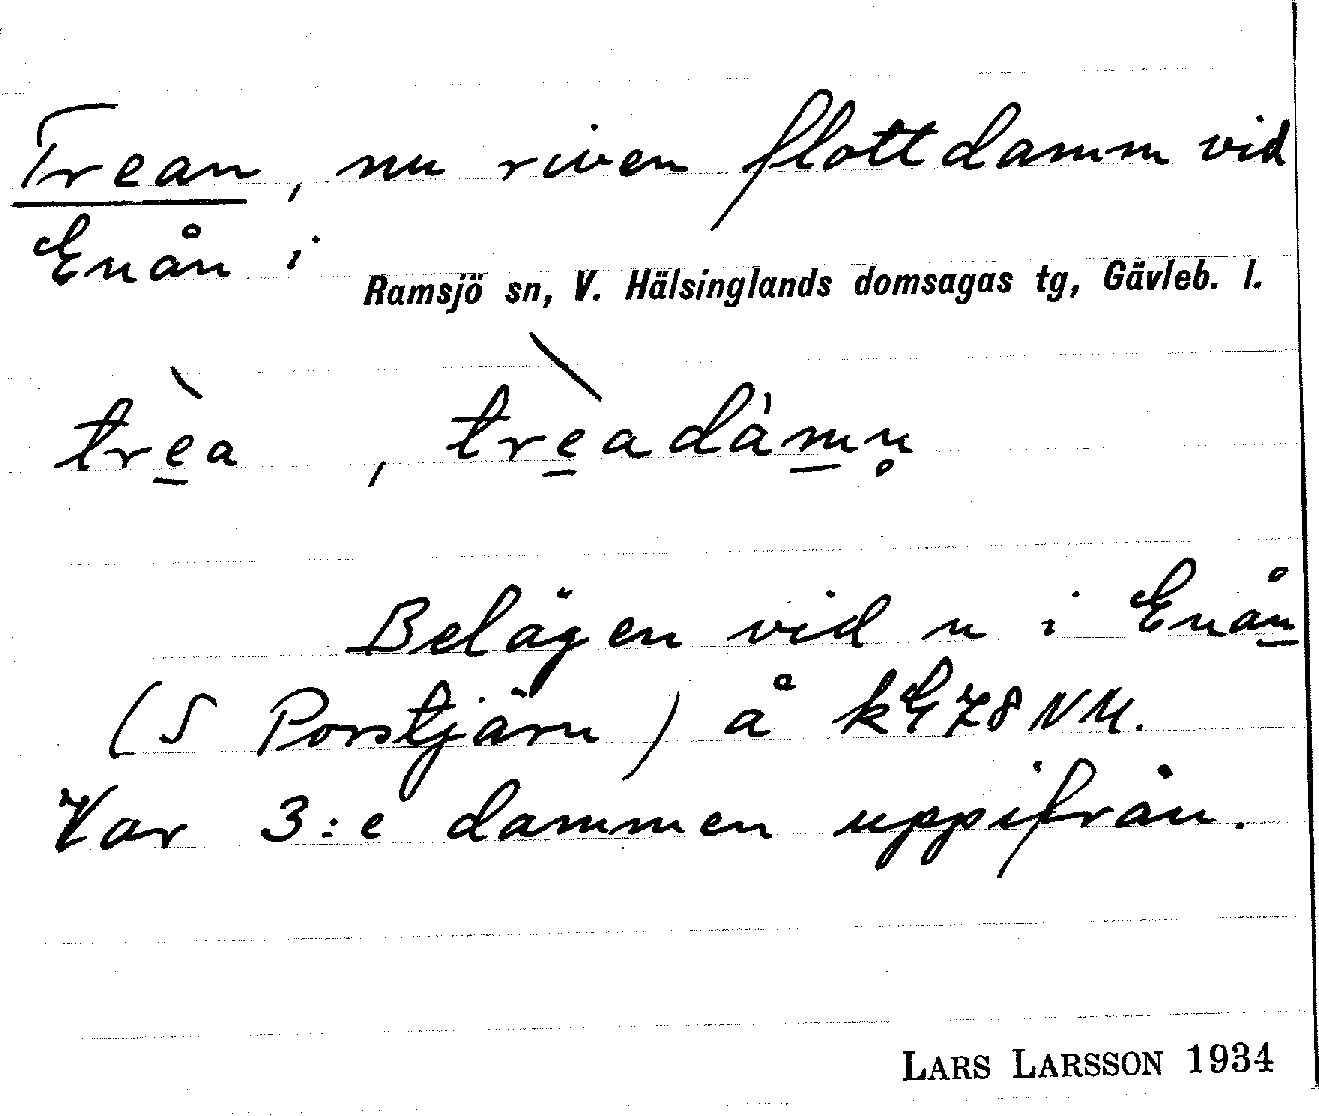 Trean, nu riven flottdamm vid
Enån i
Ramsjö sn, V. Hälsinglands domsagas tg, Gävleb. l.
trè̱a, trè̱adàm̱n̥
Belägen vid n i Enån
(S Porstjärn) å kG 78 NM.
Var 3:e dammen uppifrån.
LARS LARSSON 1934